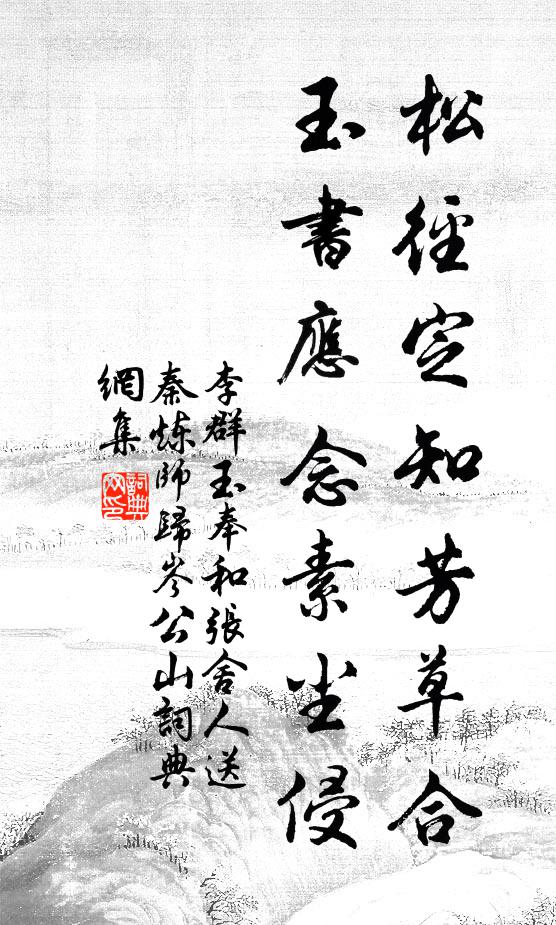 松徑定知芳草合
玉書應念素塵侵
李群玉奉和張舍人送
秦炼师歸岑公山詞典
網集
詞典
网印